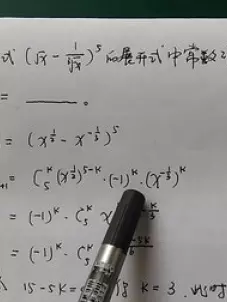 式 (√x − 1/∛x)^5 的展开式中常数
= ______ 。
= (x^{1/2} − x^{-1/3})^5
+1 = C_5^K (x^{1/2})^{5-K} · (-1)^K · (x^{-1/3})^K
= (-1)^K · C_5^K x K/3
= (-1)^K · C_5^K -5K/6
15-5K= K=3 .